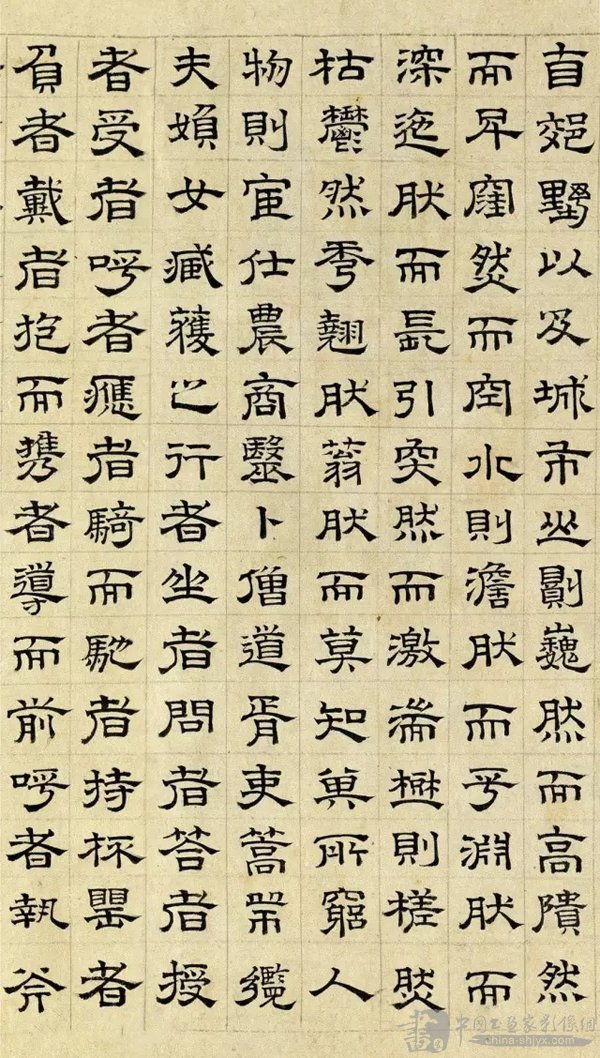 自郊墅以及城市山則巍然而高隤然
而卑窪然而空水則澹然而平淵然而
深迤然而長引突然而激湍樹則槎然
枯鬱然秀翹然蓊然而莫知其所窮人
物則宦仕農商醫卜僧道胥吏篙師纜
夫婦女臧獲之行者坐者問者答者授
者受者呼者應者騎而馳者持杯罌者
負者戴者抱而攜者導而前呼者執斧
中国书画家影像網
china-shjyx.com